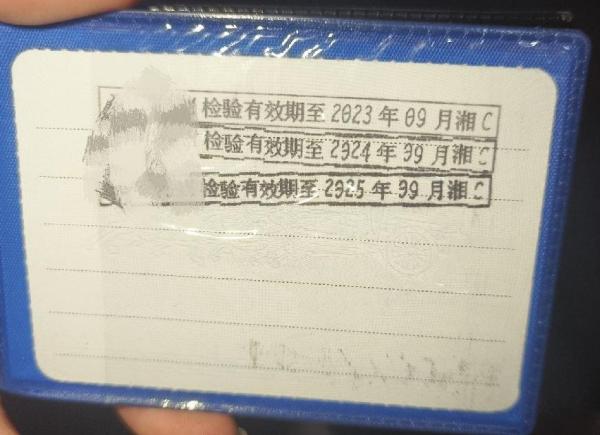 检验有效期至 2023 年 09 月湘 C
检验有效期至 2024 年 09 月湘 C
检验有效期至 2025 年 09 月湘 C